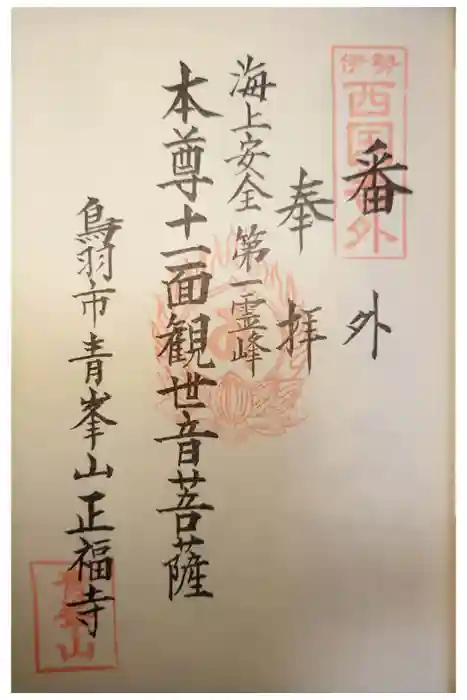 伊勢
西国
番外
番外
奉拝
海上安全 第一霊峰
本尊十一面観世音菩薩
鳥羽市青峯山正福寺